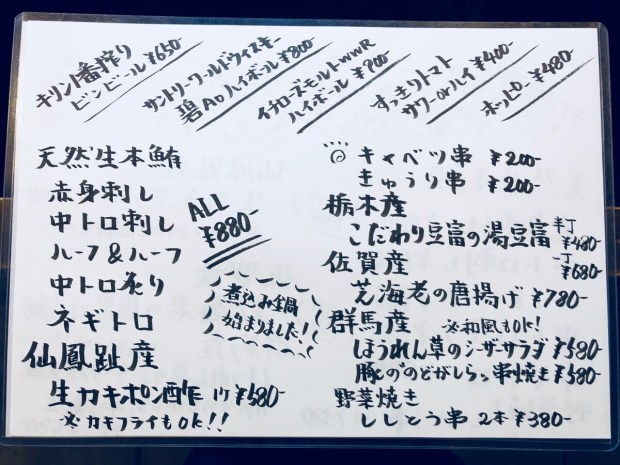 キリン一番搾り
ビンビール ¥650-
サントリーワールドウィスキー
碧Aoハイボール ¥800-
イチローズモルトWWR
ハイボール ¥900-
すっきりトマト
サワーorハイ ¥400-
ホッピー ¥480-
天然生本鮪
赤身刺し
中トロ刺し
ハーフ&ハーフ
中トロ炙り
ネギトロ
ALL
¥880-
煮込み鍋
始まりました!
仙鳳趾産
生カキポン酢 1ケ ¥580-
※カキフライもok!!
◎ キャベツ串 ¥200-
きゅうり串 ¥200-
栃木産
こだわり豆富の湯豆富 半丁 ¥480-
一丁 ¥680-
佐賀産
芝海老の唐揚げ ¥780-
群馬産 ※和風もok!
ほうれん草のシーザーサラダ ¥580-
豚ののどがしら串焼き ¥580-
野菜焼き
ししとう串 2本 ¥380-